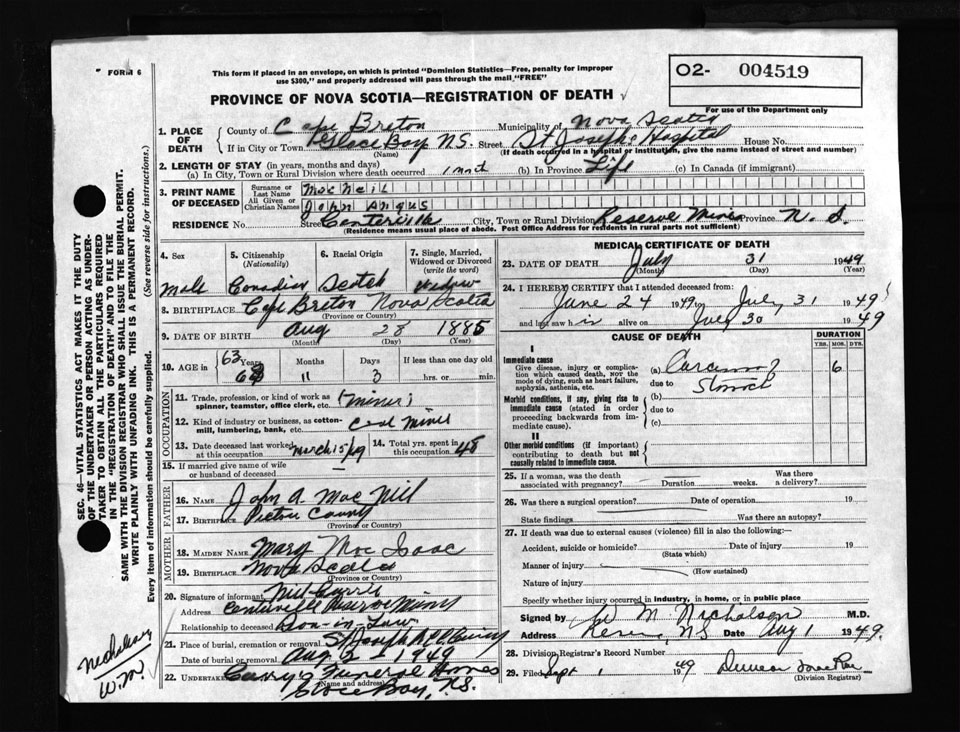 FORM 6
This form if placed in an envelope, on which is printed "Dominion Statistics—Free, penalty for improper
use $300," and properly addressed will pass through the mail "FREE"
O2- 004519
For use of the Department only
PROVINCE OF NOVA SCOTIA—REGISTRATION OF DEATH
1. PLACE OF DEATH
County of Cape Breton Municipality of Nova Scotia
If in City or Town Glace Bay N.S. Street St Josephs Hospital House No.
(Name) (If death occurred in a hospital or institution, give the name instead of street and number)
2. LENGTH OF STAY (in years, months and days)
(a) In City, Town or Rural Division where death occurred 1 (b) In Province Life (c) In Canada (if immigrant)
3. PRINT NAME OF DECEASED
Surname or Last Name Mac Neil
All Given or Christian Names John Angus
RESIDENCE No. Street Centerville City, Town or Rural Division Reserve Mines Province N. S.
(Residence means usual place of abode. Post Office Address for residents in rural parts not sufficient)
4. Sex
Male
5. Citizenship (Nationality)
Canadian
6. Racial Origin
Scotch
7. Single, Married, Widowed or Divorced (write the word)
Widow
8. BIRTHPLACE Cape Breton Nova Scotia
(Province or Country)
9. DATE OF BIRTH Aug 28 1885
(Month) (Day) (Year)
10. AGE in 63 Years Months Days If less than one day old
11 3 hrs. or min.
OCCUPATION
11. Trade, profession, or kind of work as spinner, teamster, office clerk, etc. (miner)
12. Kind of industry or business, as cotton-mill, lumbering, bank, etc. Coal Mines
13. Date deceased last worked at this occupation March 15/49
14. Total yrs. spent in this occupation 48
15. If married give name of wife or husband of deceased
FATHER
16. NAME John A. Mac Neil
17. BIRTHPLACE Pictou County
(Province or Country)
MOTHER
18. MAIDEN NAME Mary Mac Isaac
19. BIRTHPLACE Nova Scotia
(Province or Country)
20. Signature of informant Neil
Address Centerville Reserve Mines
Relationship to deceased Son-in-Law
21. Place of burial, cremation or removal St Joseph
Date of burial or removal Aug 2 1949
22. UNDERTAKER Curry's Funeral Home
Glace Bay, N.S.
MEDICAL CERTIFICATE OF DEATH
23. DATE OF DEATH July 31 1949
(Month) (Day) (Year)
24. I HEREBY CERTIFY that I attended deceased from:
June 24 1949 to July 31 1949
and last saw h is alive on July 30 1949
CAUSE OF DEATH
DURATION
YRS. MOS. DYS.
I
Immediate cause
Give disease, injury or complication which caused death, NOT the mode of dying, such as heart failure, asphyxia, asthenia, etc.
(a) Carcinoma 6
due to Stomach
Morbid conditions, if any, giving rise to immediate cause (stated in order proceeding backwards from immediate cause).
(b)
due to
(c)
II
Other morbid conditions (if important) contributing to death but not causally related to immediate cause.
25. If a woman, was the death associated with pregnancy? Duration weeks. Was there a delivery?
26. Was there a surgical operation? Date of operation 19
State findings Was there an autopsy?
27. If death was due to external causes (violence) fill in also the following:—
Accident, suicide or homicide? Date of injury 19
(State which)
Manner of injury
(How sustained)
Nature of injury
Specify whether injury occurred in industry, in home, or in public place
Signed by M. Nicholson M.D.
Address N.S Date Aug 1 1949.
28. Division Registrar's Record Number
29. Filed Sept 1 1949 Duncan
(Division Registrar)
SEC. 46—VITAL STATISTICS ACT MAKES IT THE DUTY
OF THE UNDERTAKER OR PERSON ACTING AS UNDER-
TAKER TO OBTAIN ALL THE PARTICULARS REQUIRED
IN THE "REGISTRATION OF DEATH" AND TO FILE THE
SAME WITH THE DIVISION REGISTRAR WHO SHALL ISSUE THE BURIAL PERMIT.
WRITE PLAINLY WITH UNFADING INK. THIS IS A PERMANENT RECORD.
Every item of information should be carefully supplied. (See reverse side for instructions.)
W.M.